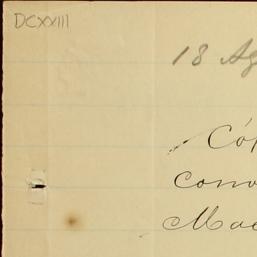 DCXXIII
18 Ag
Cóp
conv
Mac